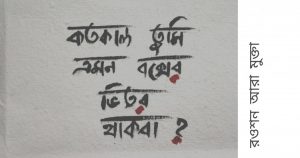 কতকাল তুমি
এমন বক্ষের
ভিতর
থাকবা ?
রওশন আরা মুক্তা